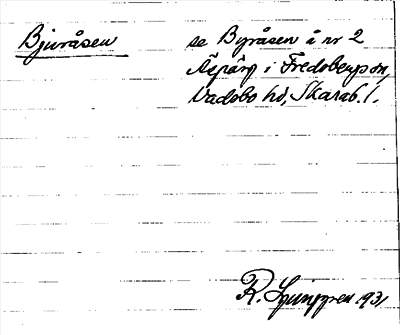 Bjuråsen
se Byråsen å nr 2
Äspäng i Fredsbergs sn,
Vadsbo hd, Skarab. l.
R. Ljunggren 1931